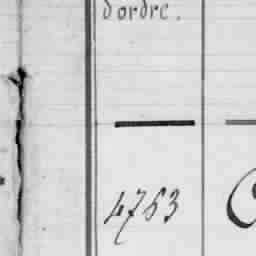 d'ordre.
4753